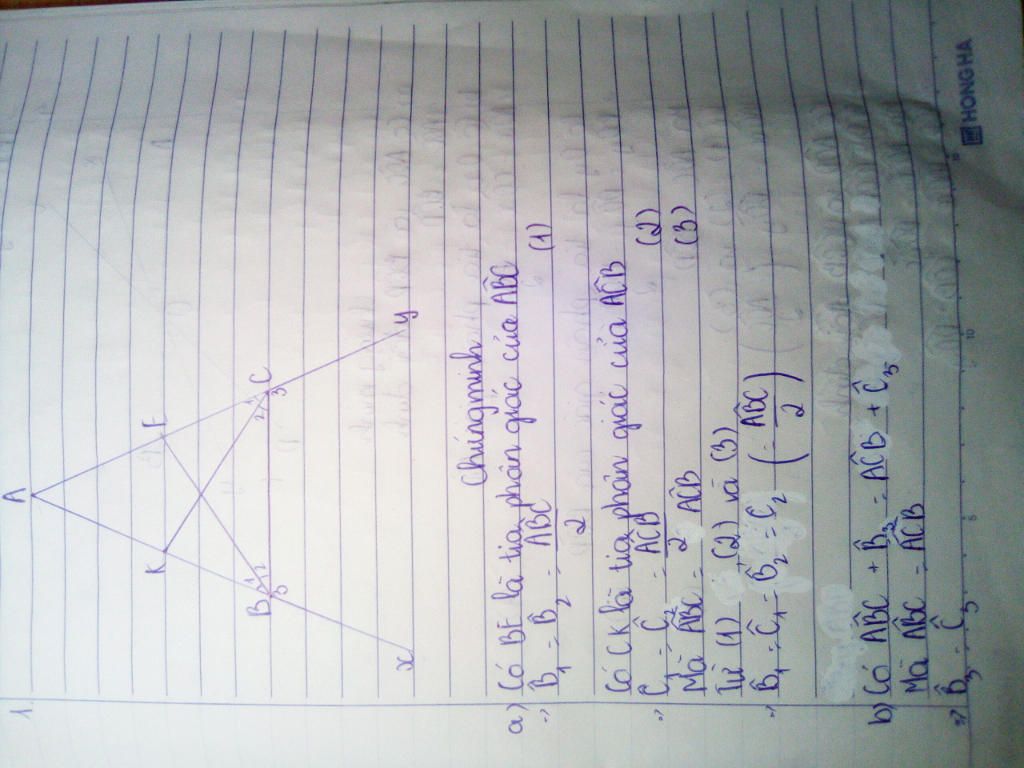 1.
A
K
F
B 1 2 3
C 1 2 3
x
y
Chứng minh
a) Có BF là tia phân giác của ABC^
=> B̂1 = B̂2 = ABC^/2 (1)
Có CK là tia phân giác của ACB^
=> Ĉ1 = Ĉ2 = ACB^/2 (2)
Mà ABC^ = ACB^ (3)
Từ (1), (2) và (3)
=> B̂1 = Ĉ1 = B̂2 = Ĉ2 (= ABC^/2)
b) Có ABC^ + B̂3 = ACB^ + Ĉ3
Mà ABC^ = ACB^
=> B̂3 = Ĉ3
5
10
HONG HA